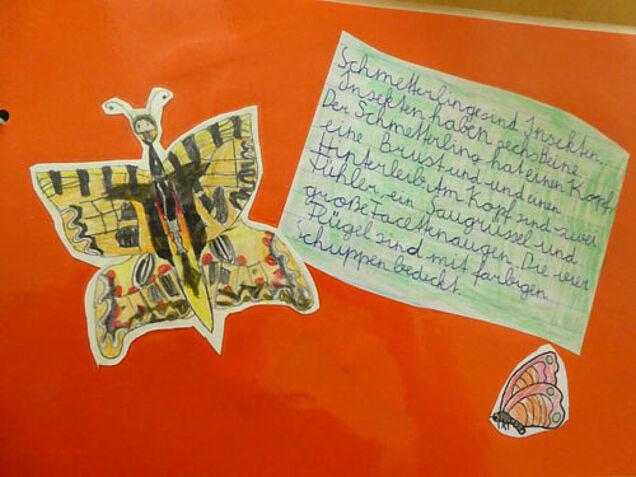 Schmetterlinge sind Insekten.
Insekten haben sechs Beine.
Der Schmetterling hat einen Kopf,
eine Brust und und einen
Hinterleib. Am Kopf sind zwei
Fühler ein Saugrüssel und
große Facettenaugen. Die vier
Flügel sind mit farbigen
Schuppen bedeckt.